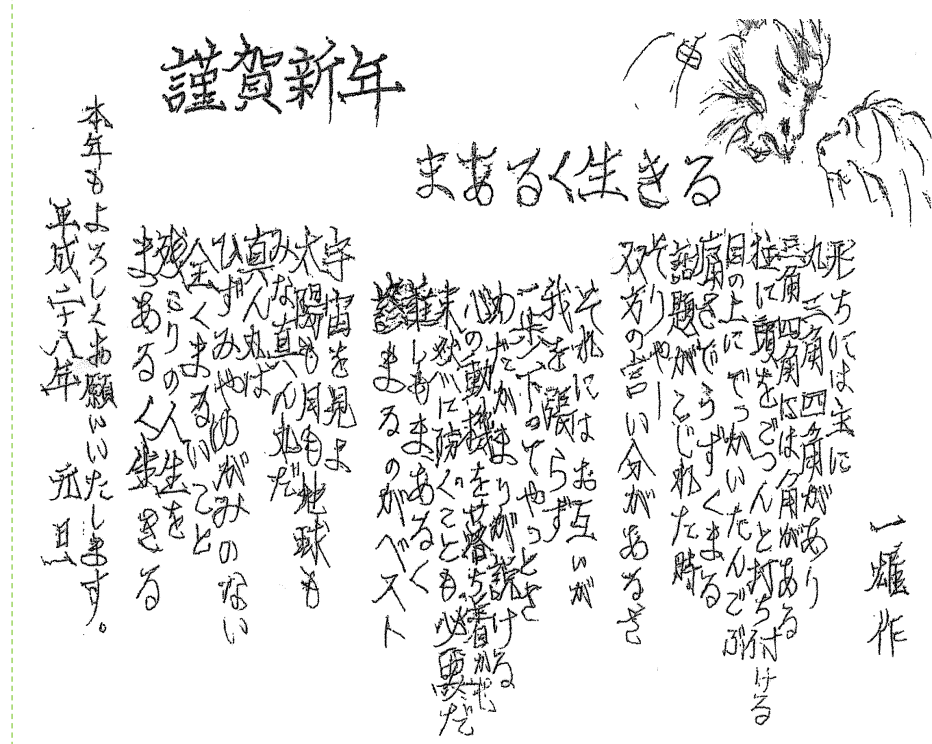 謹賀新年
まあるく生きる
一雄作
形ちには主に
丸 三角 四角があり
三角 四角には角がある
柱に頭をごつんと打ち付ける
目の上にでっかいたんこぶ
痛さでうずくまる
話題がこじれた時
そりゃー
双方の言い分があるさ
それにはお互いが
我を張らず
一歩下ってやっとこさ
わだかまりが説ける
心の動揺を落ち着かせ
末広に開くことも必要だ
誰しもまあるく
まるのがベスト
宇宙を見よ
太陽も月も地球も
みな真ん丸だ
真ん丸は
ひずみやゆがみのない
全くまるいこと
残りの人生を
まあるく生きる
本年もよろしくお願いいたします。
平成二十八年 元旦